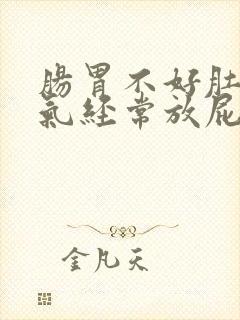 腸胃不好肚
氣經常放屁
金凡天